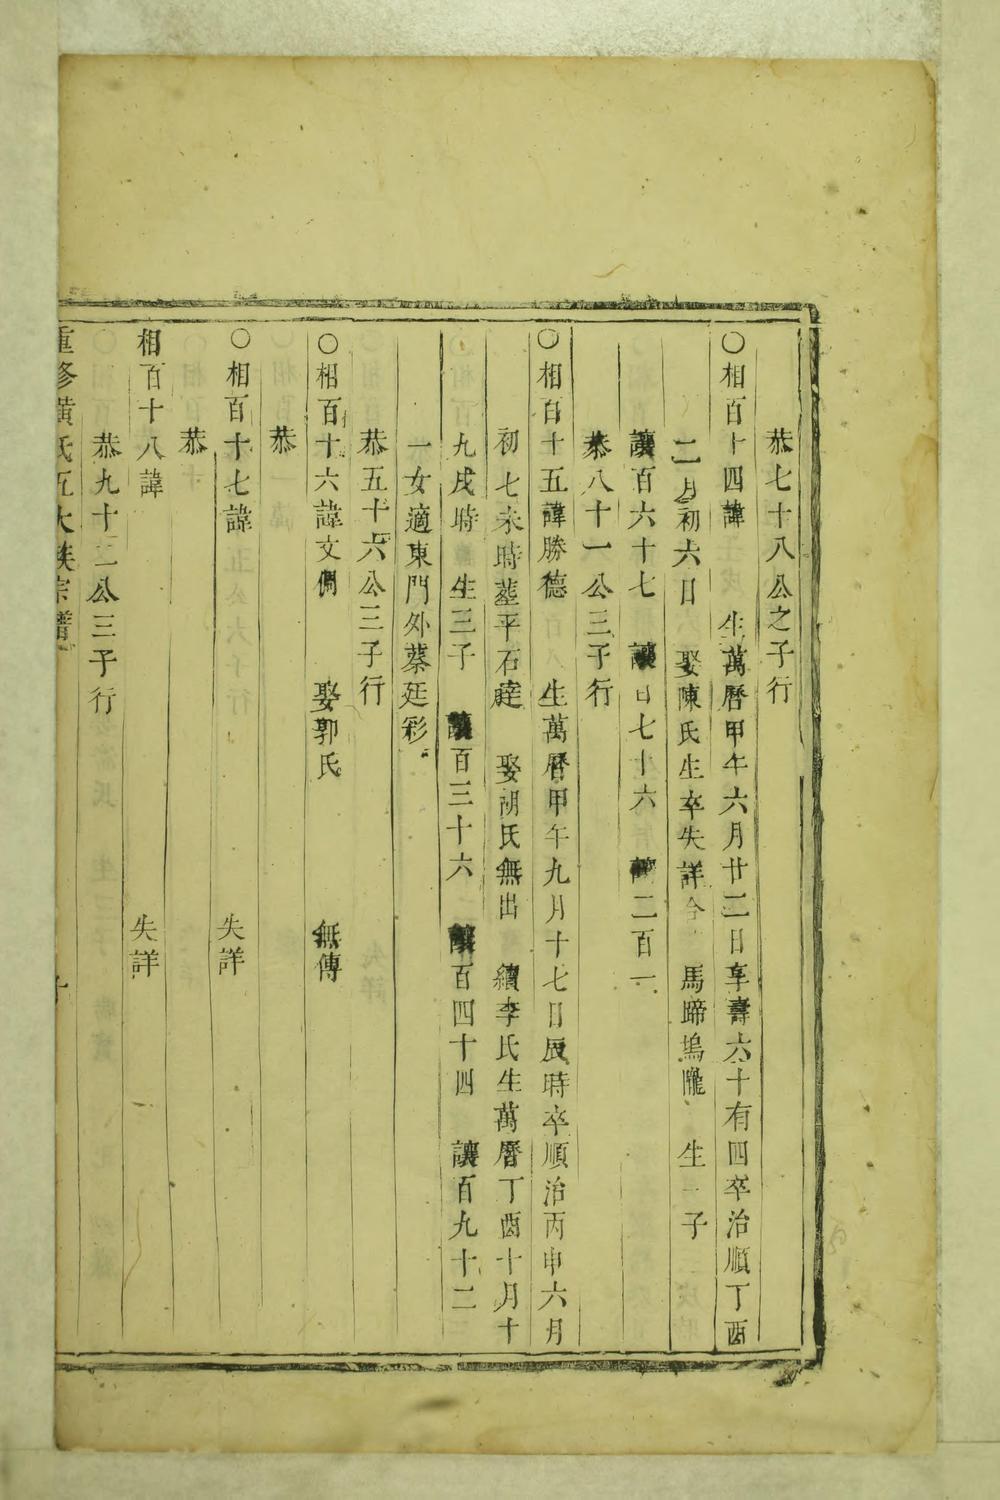 恭七十八公之子行
○相百十四諱　生萬曆甲午六月廿二日享壽六十有四卒治順丁酉
二月初六日　娶陳氏生卒失詳合　馬蹄塢隴　生一子
讓百六十七　讓百七十六　讓二百一
恭八十一公三子行
○相百十五諱勝德　生萬曆甲午九月十七日辰時卒順治丙申六月
初七未時塟平石　娶胡氏無出　續李氏生萬曆丁酉十月十
九戌時　生三子　讓百三十六　讓百四十四　讓百九十二
一女適東門外蔡廷彩
恭五十六公三子行
○相百十六諱文　娶郭氏　無傳
恭
○相百十七諱　失詳
恭
相百十八諱　失詳
恭九十二公三子行
重修黃氏五大族宗譜